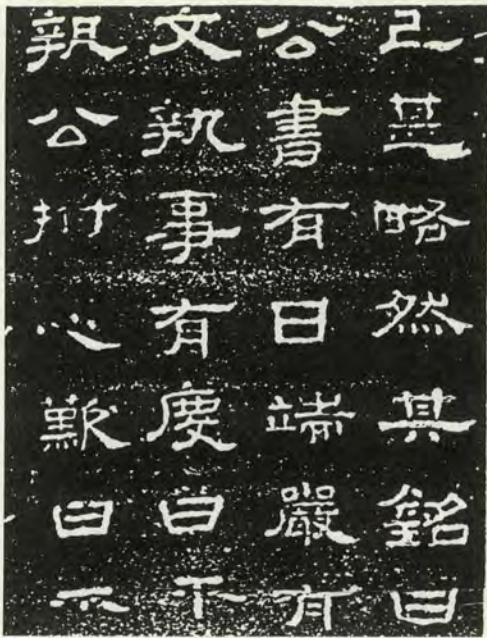 已甚略然其銘曰
公書有曰端嚴有
文執事有度曰不
執公拊心歎曰不